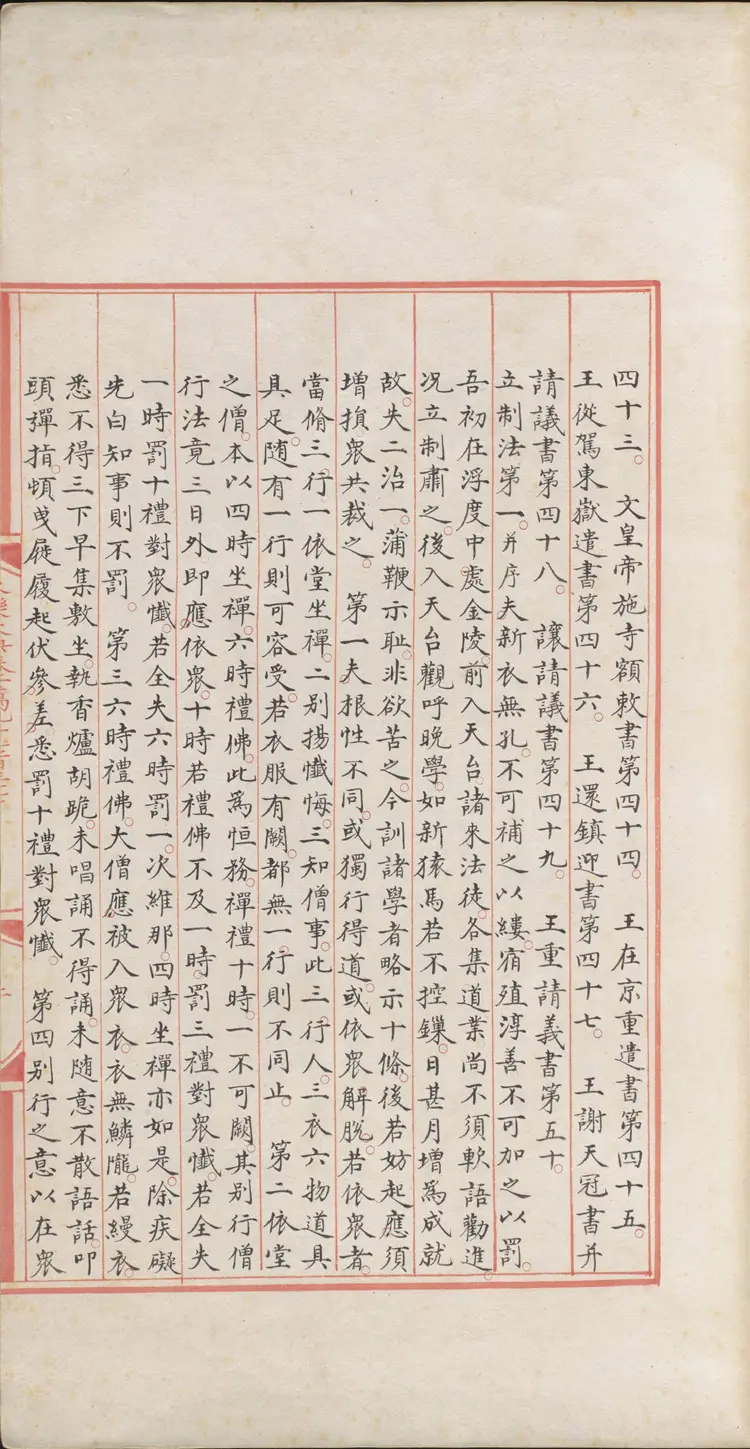 四十三。　文皇帝施寺額敕書第四十四。　王在京重遣書第四十五。
王從駕東嶽遣書第四十六。　王還鎮迎書第四十七。　王謝天冠書并
請議書第四十八。　讓請議書第四十九。　王重請義書第五十。
立制法第一。并序夫新衣無孔。不可補之以縷。宿殖淳善不可加之以罰。
吾初在浮度中處金陵。前入天台。諸來法徒。各集道業尚不須軟語勸進。
况立制肅之。後入天台觀呼晚學。如新猿馬若不控鏁。日甚月增為成就
故。失二治一。蒲鞭示耻。非欲苦之。今訓諸學者略示十條。後若妨起應須
增損衆共裁之。　第一夫根性不同。或獨行得道。或依衆解脫。若依衆者。
當脩三行一依堂坐禪。二别揚懺悔。三知僧事。此三行人。三衣六物道具
具足。随有一行則可容受。若衣服有闕。都無一行則不同止。　第二依堂
之僧。本以四時坐禪。六時禮佛。此為恒務。禪禮十時。一不可闕。其别行僧
行法竟三日外。即應依衆。十時若禮佛不及一時。罰三禮對衆懺。若全失
一時。罰十禮對衆懺。若全失六時罰一。次維那。四時坐禪亦如是。除疾礙
先白知事則不罰。　第三六時禮佛。大僧應。被入衆衣。衣無鱗隴。若縵衣。
悉不得三下早集敷坐。執香爐胡跪。未唱誦不得誦。未随意不散語話。叩
頭彈指。頓曳屣履起伏參差。悉罰十禮對衆懺。　第四别行之意以在衆